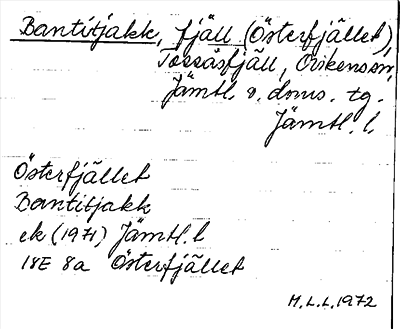 Bantitjakk, fjäll (Österfjället),
Tossåsfjäll, Ovikens sn,
Jämtl. s. doms. tg.
Jämtl. l.
Österfjället
Bantitjakk
ek (1971) Jämtl. l
18E 8a Österfjället
M.L.L. 1972